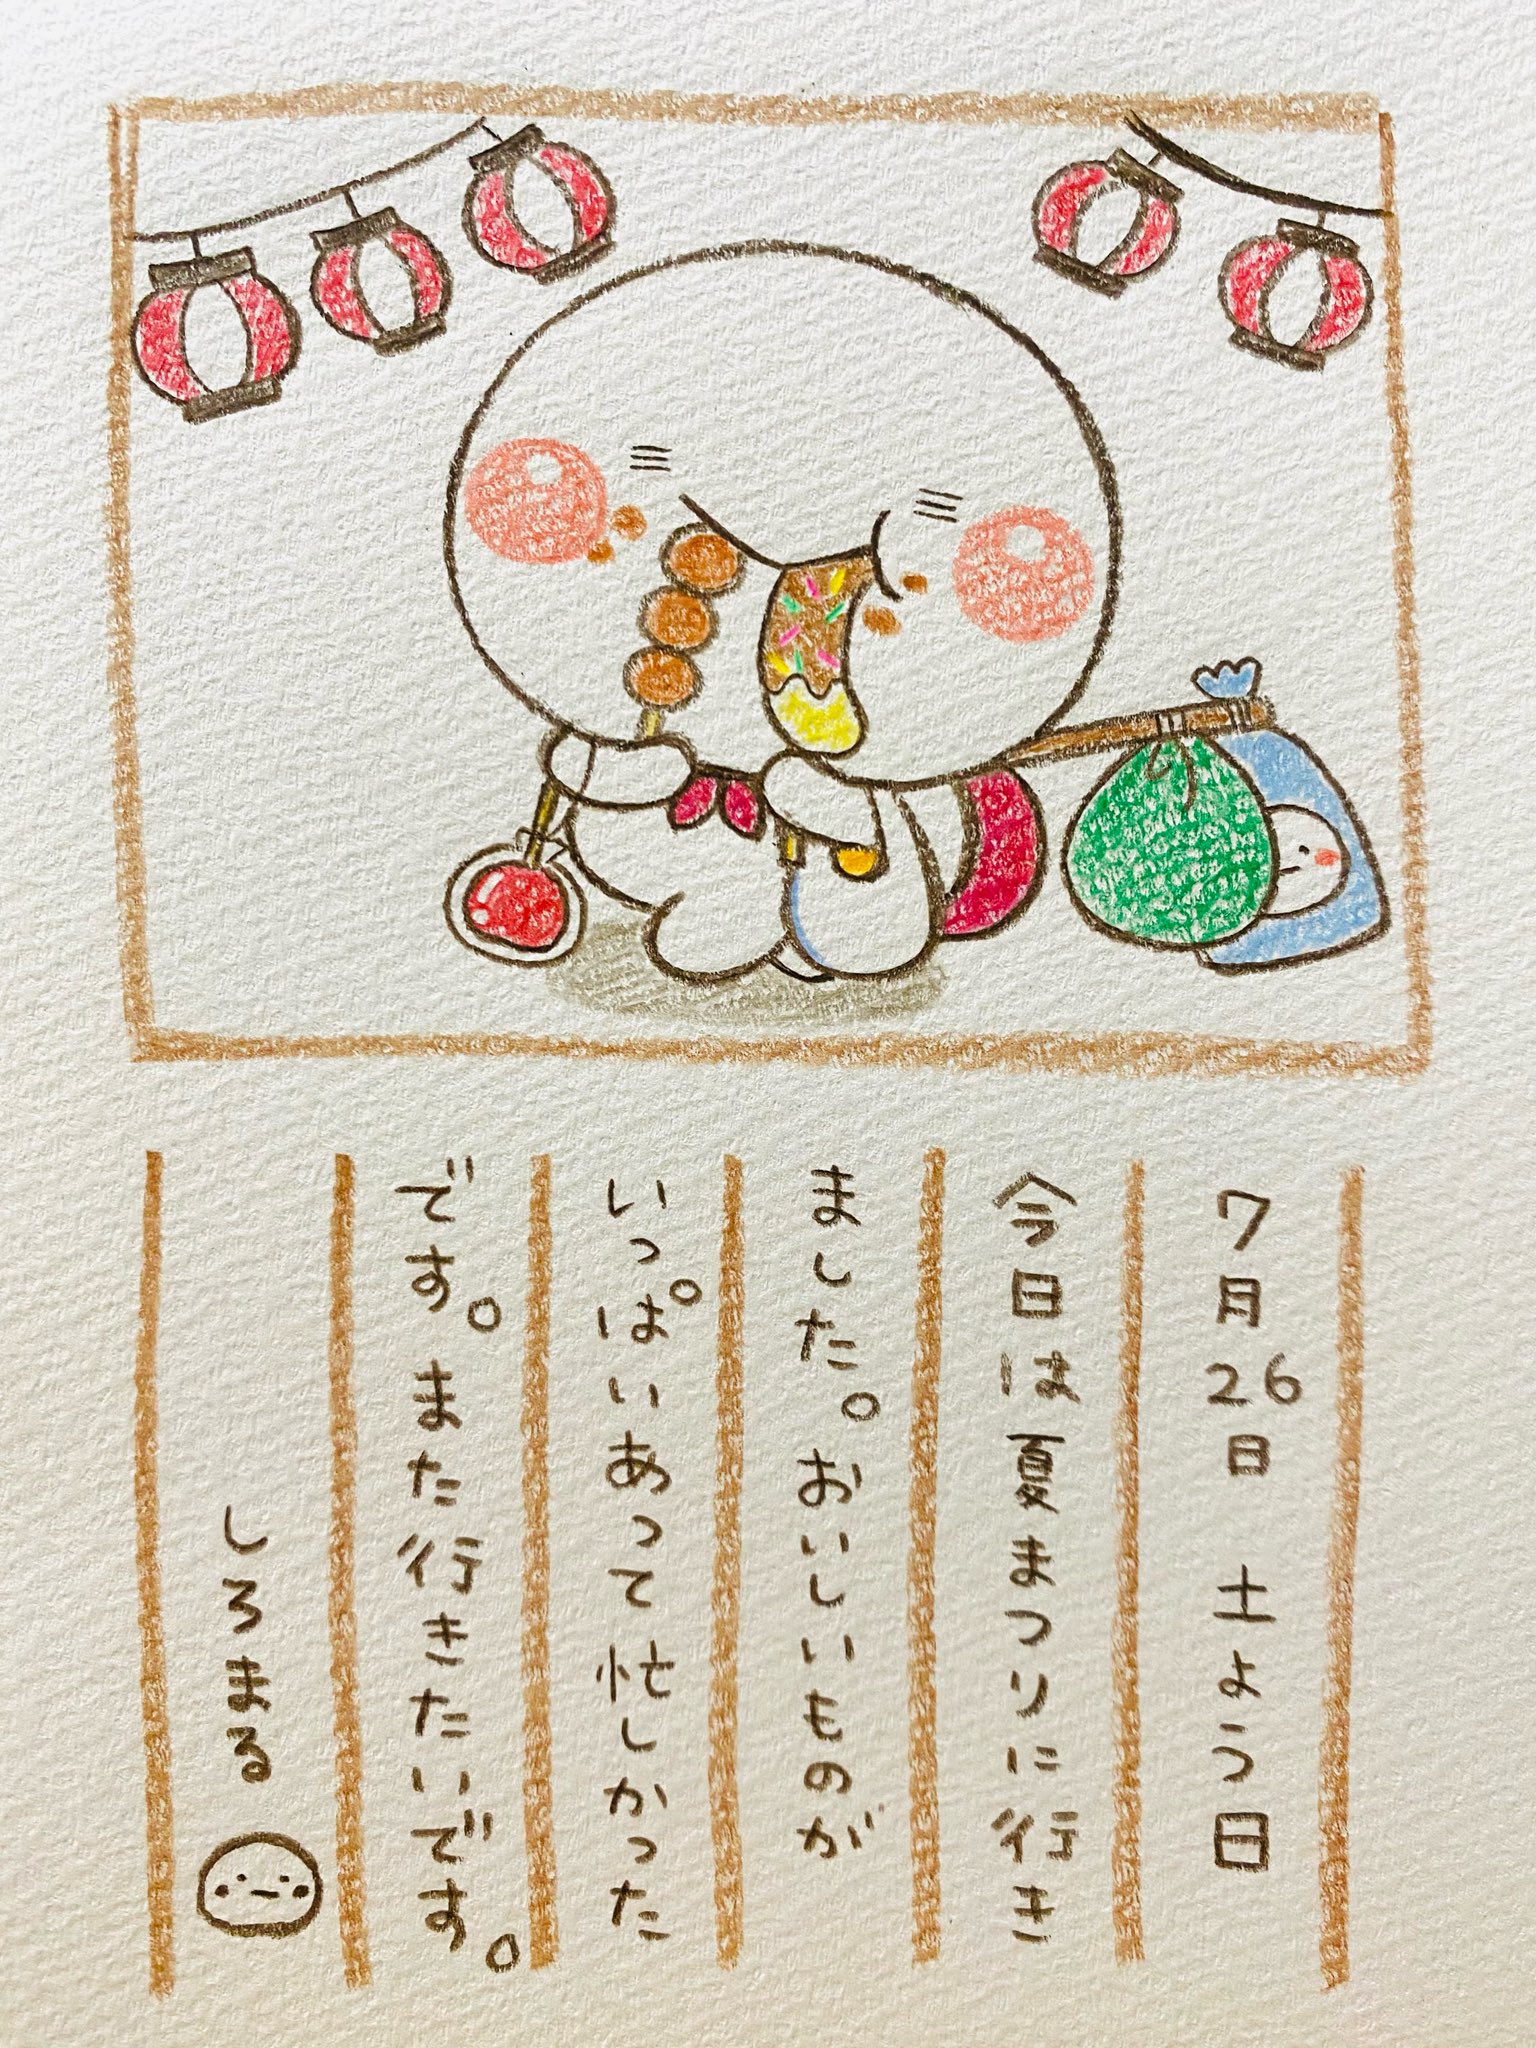 7月26日 土よう日
今日は夏まつりに行き
ました。おいしいものが
いっぱいあって忙しかった
です。また行きたいです。
しろまる